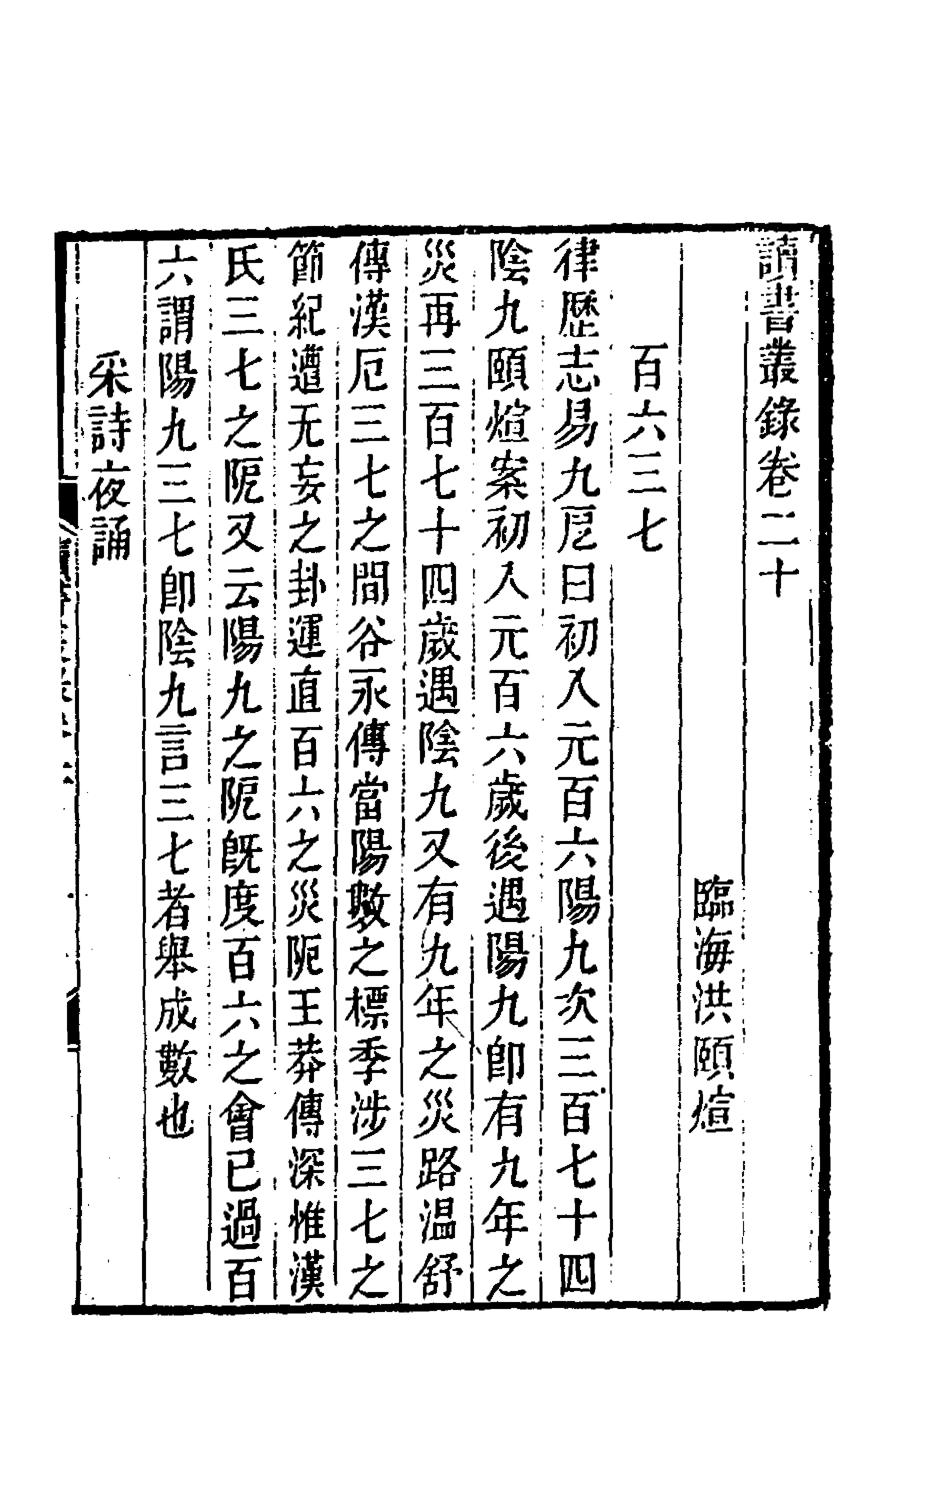 讀書叢錄卷二十
臨海洪頤煊
百六三七
律歷志易九戹曰初入元百六陽九次三百七十四
陰九頤煊案初入元百六歲後遇陽九卽有九年之
災再三百七十四歲遇陰九又有九年之災路温舒
傳漢厄三七之間谷永傳當陽數之標季涉三七之
節紀遭无妄之卦運直百六之災阸王莽傳深惟漢
氏三七之阸又云陽九之阸旣度百六之會已過百
六謂陽九三七卽陰九言三七者舉成數也
采詩夜誦